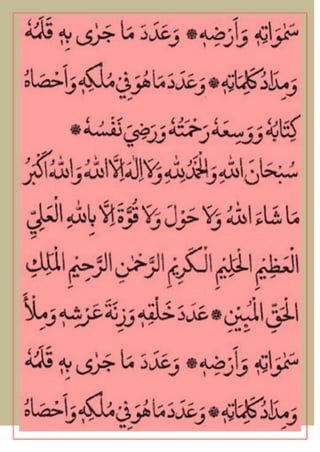 سَمٰوَاتِهٖ وَاَرْضِهٖ ۞ وَعَدَدَ مَا جَرٰى بِهٖ قَلَمُهُ
وَمِدَادُ كَلِمَاتِهٖ ۞ وَعَدَدَ مَا هُوَ فِيْ مُلْكِهٖ وَاَحْصَاهُ
كِتَابُهُ وَوَسِعَهُ رَحْمَتُهُ وَرَضِيَ نَفْسُهُ ۞
سُبْحَانَ اللهِ وَالْحَمْدُ لِلّٰهِ وَلَا اِلٰهَ اِلَّا اللهُ وَاللهُ اَكْبَرُ
مَا شَاءَ اللهُ وَلَا حَوْلَ وَلَا قُوَّةَ اِلَّا بِاللهِ الْعَلِيِّ
الْعَظِيْمِ الْحَلِيْمِ الْكَرِيْمِ الرَّحْمٰنِ الرَّحِيْمِ الْمَلِكِ
الْحَقِّ الْمُبِيْنِ ۞ عَدَدَ خَلْقِهٖ وَزِنَةَ عَرْشِهٖ وَمِلْأَ
سَمٰوَاتِهٖ وَاَرْضِهٖ ۞ وَعَدَدَ مَا جَرٰى بِهٖ قَلَمُهُ
وَمِدَادُ كَلِمَاتِهٖ ۞ وَعَدَدَ مَا هُوَ فِيْ مُلْكِهٖ وَاَحْصَاهُ